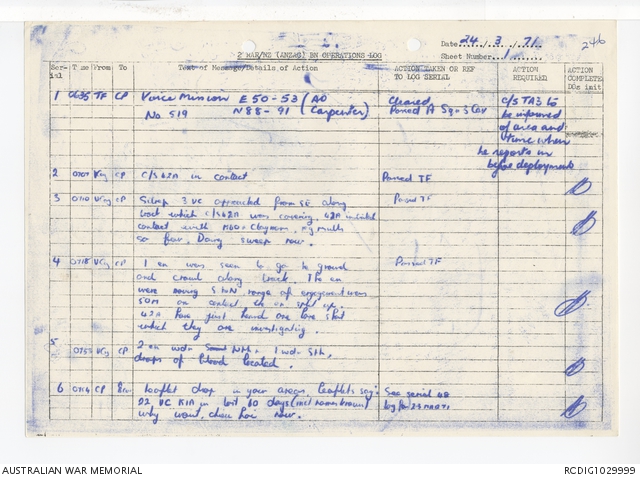 246
Date 24 / 3 / 71
2 RAR/NZ (ANZAC) BN OPERATIONS LOG
Sheet Number 1
Ser-ial Time From To Text of Message/Details of Action ACTION TAKEN OR REF TO LOG SERIAL ACTION REQUIRED ACTION COMPLETED DOs init
1 0635 TF CP Voice Mission E 50-53 (AO Cleared C/S TA3 to
No 519 N 88-91 Carpenter) Passed A Sqn 3 Cav be informed
of area and
time when
he reports in
before deployment
2 0707 VCy CP C/S 42A in contact Passed TF
3 0710 VCy CP Sitrep 3 VC approached from SE along Passed TF
track which C/S 42A was covering. 42A initiated
contact with M60 + Claymore, no results
so far, Doing sweep now.
4 0718 VCy CP 1 en was seen to go to ground Passed TF
and crawl along track. The en
were moving S to N range of engagement was
50M on contact en split up.
42A have just heard one lone shot
which they are investigating.
5 0755 VCy CP 2 en wdn Nth, 1 wdn Sth,
drops of blood located.
6 0714 CP leaflet drop in your areas leaflets say: See serial 48
22 VC KIA in last 60 days (incl names known) log for 23 MAR 71
why wait, chieu hoi now.
AUSTRALIAN WAR MEMORIAL
RCDIG1029999